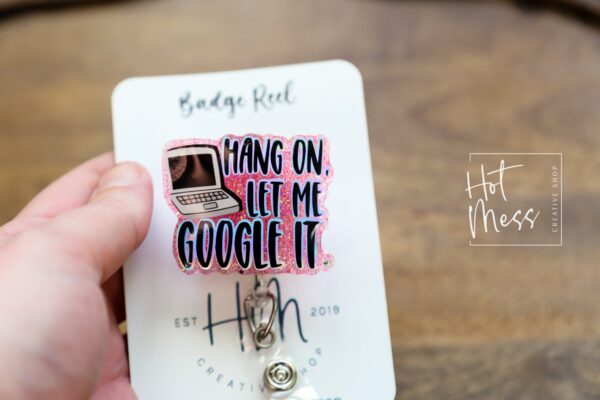 Badge Reel
HANG ON,
LET ME
GOOGLE IT.
EST HM 2019
CREATIVE SHOP
Hot
Mess
CREATIVE SHOP